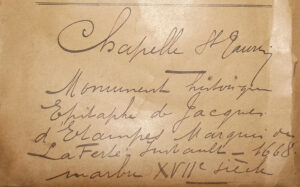 Chapelle St Taurin
Monument historique
Epitaphe de Jacques
d'Etampes Marquis de
La Ferté Imbault - 1668
marbre XVIIe siècle